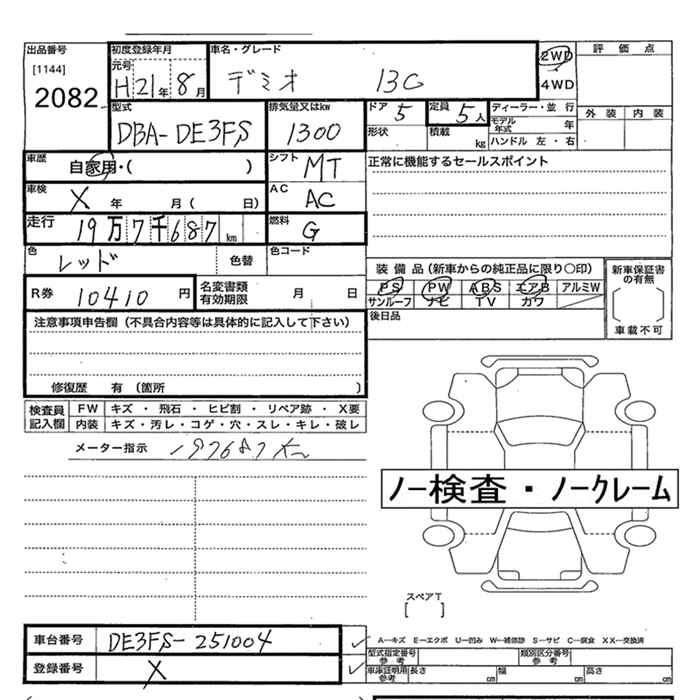 出品番号 初度登録年月 車名・グレード 2WD 評価点
[1144] 元号 4WD
2082 H21年8月 デミオ 13C
型式 排気量又はkw ドア 定員 ディーラー・並行 外装 内装
DBA-DE3FS 1300 5 5人 モデル年式 年
形状 積載 kg ハンドル 左・右
車歴 自家用・( ) シフト MT 正常に機能するセールスポイント
車検 X 年 月( 日) AC AC
走行 19万7千687km 燃料 G
色 レッド 色替 色コード
装備品(新車からの純正品に限り○印) 新車保証書の有無
R券 10410円 名変書類有効期限 月 日 PS PW ABS エアB アルミW
サンルーフ ナビ TV カワ 車載不可
注意事項申告欄(不具合内容等は具体的に記入して下さい) 後日品
修復歴 有(箇所 )
検査員記入欄 FW キズ・飛石・ヒビ割・リペア跡・X要
内装 キズ・汚レ・コゲ・穴・スレ・キレ・破レ
メーター指示 197687K
ノー検査・ノークレーム
スペアT
[ ]
車台番号 DE3FS-251004
登録番号 X
A—キズ E—エクボ U—凹み W—補修跡 S—サビ C—腐食 XX—交換済
型式指定番号 参考 類別区分番号 参考
車庫証明用 参考 長さ cm 幅 cm 高さ cm